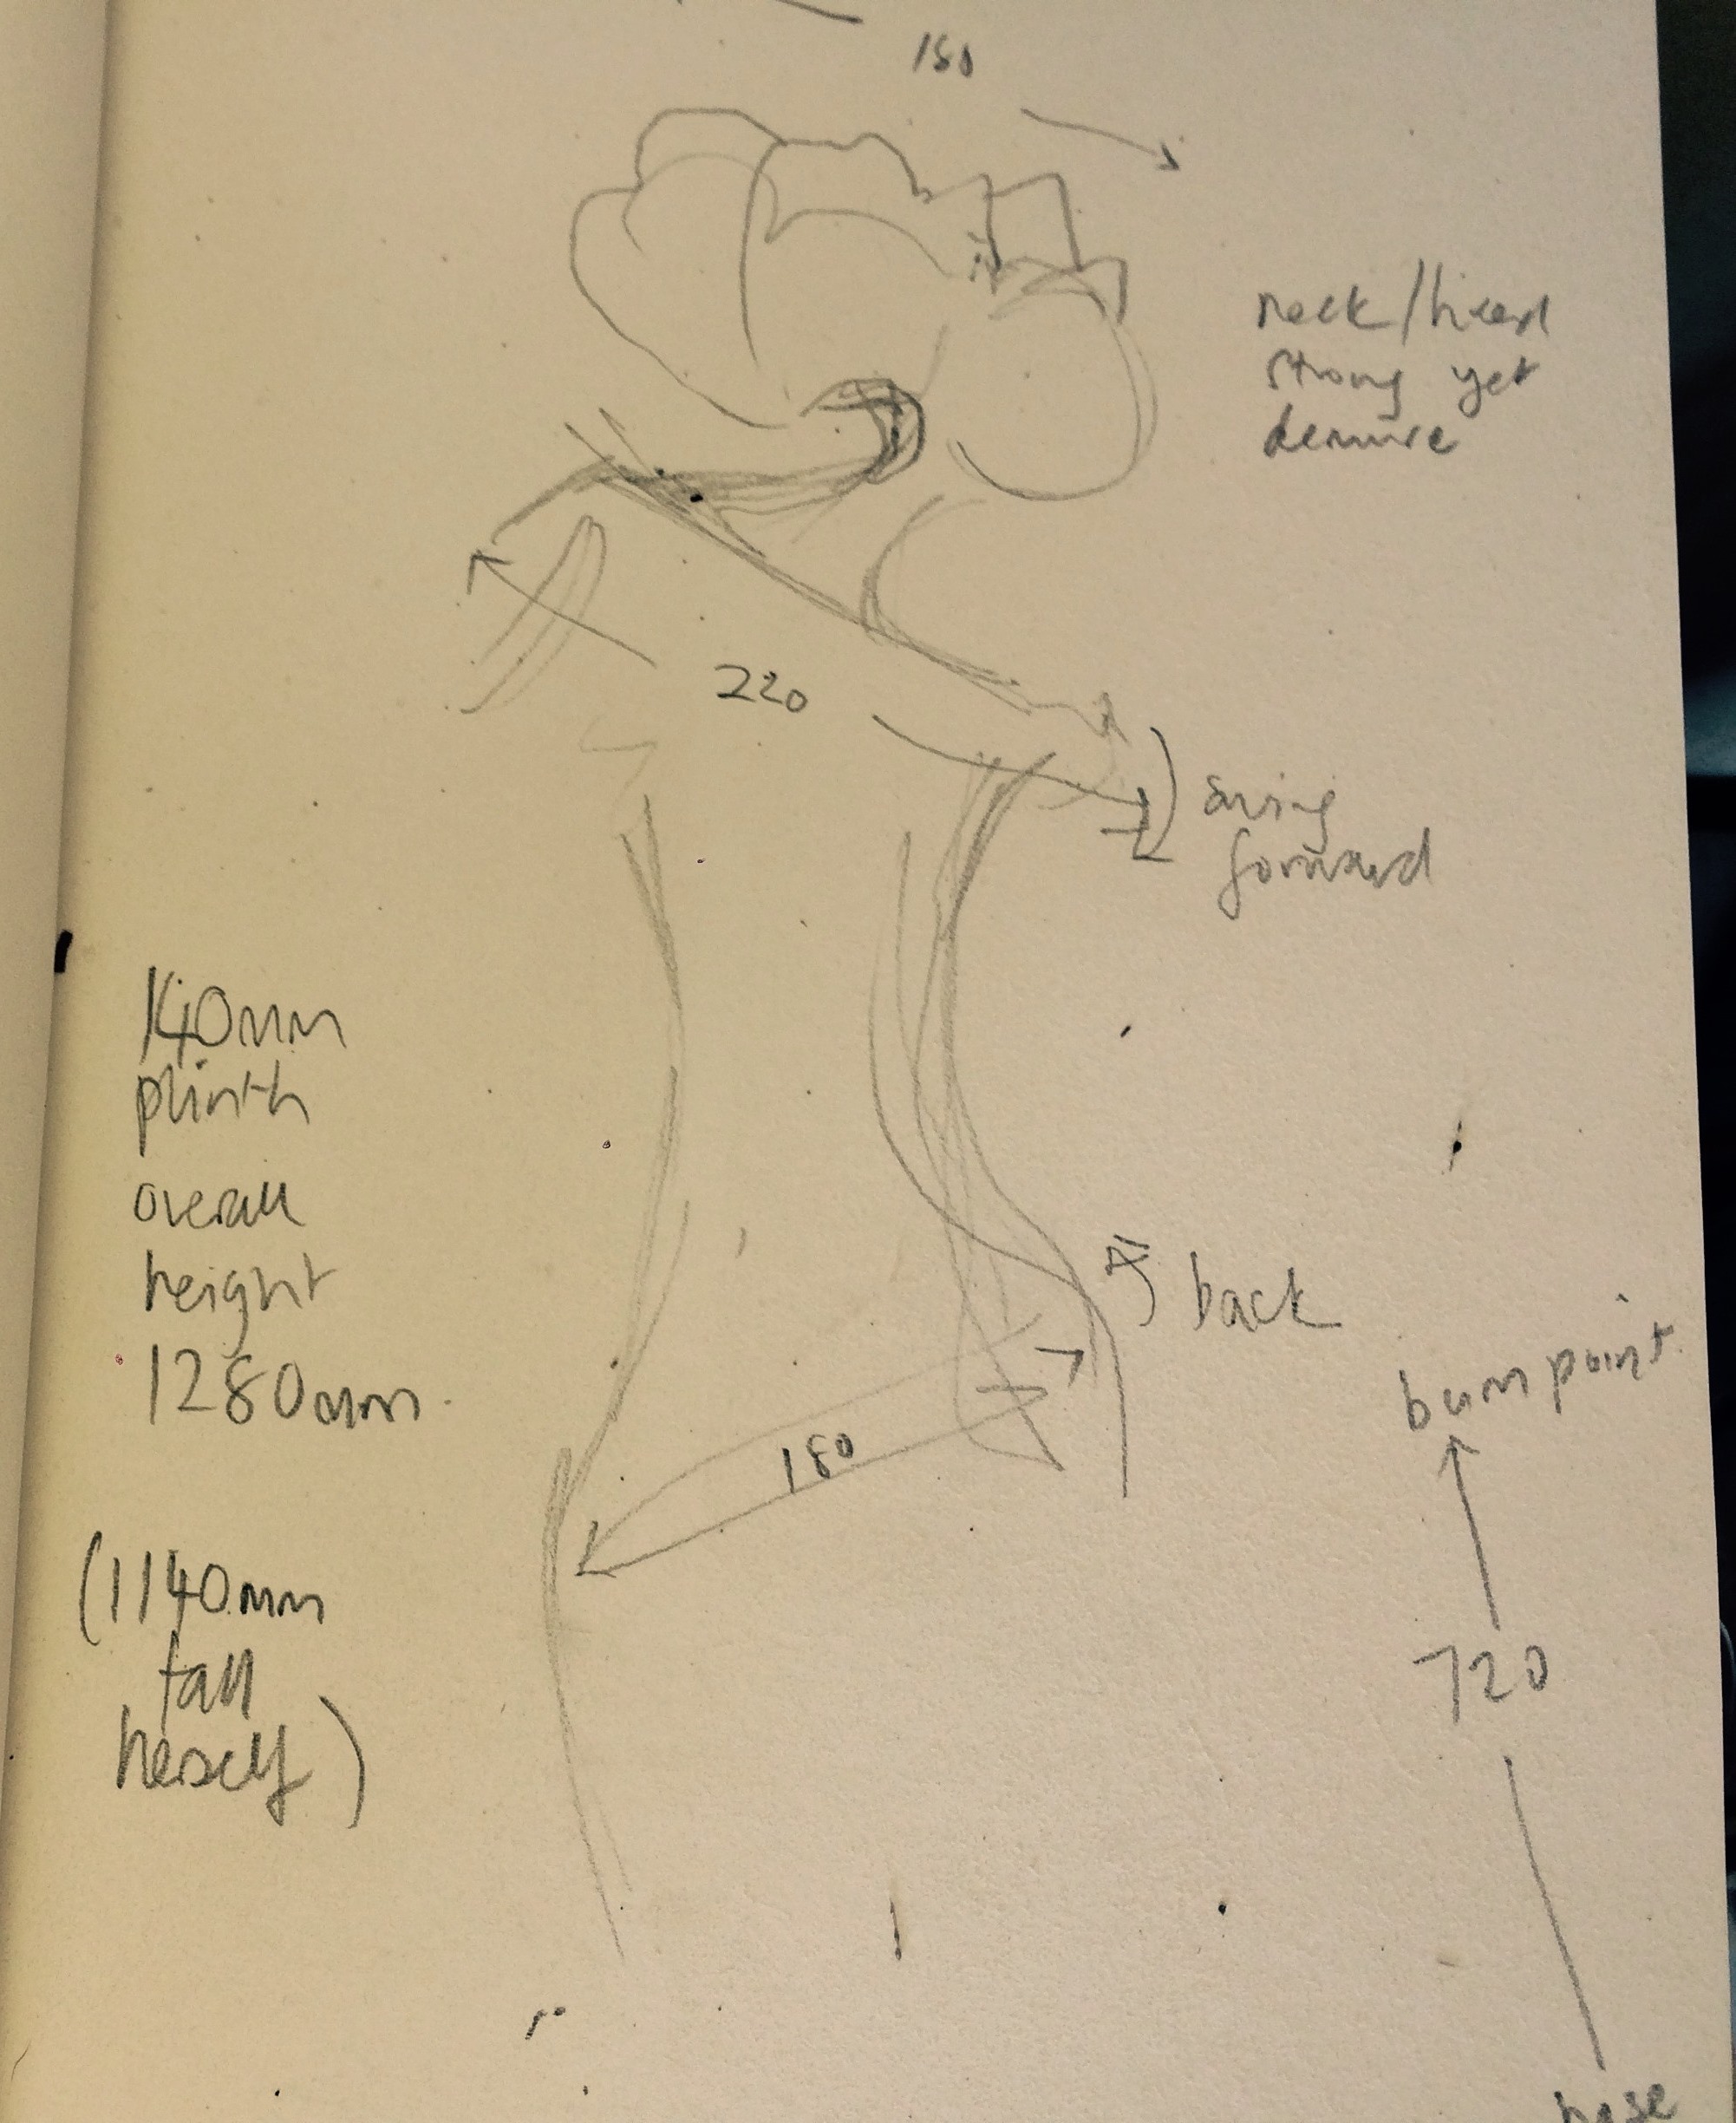 180
neck/head
strong yet
demure
220
swing
forward
140mm
plinth
overall
height
1280mm.
back
bum point
180
(1140mm
tall
herself)
720
base